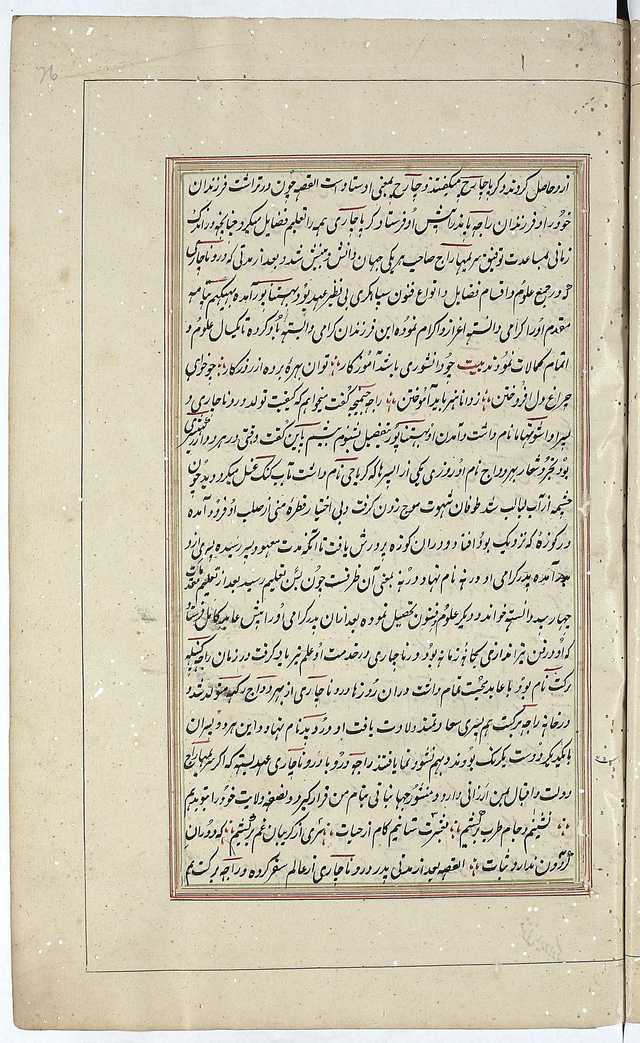 از و حاصل کردند و کرپاچارج میگفتند و چارج بمعنی اوستاد است القصه چون در تراشت فرزندان
خود را و فرزندان راجه پاند را پیش او فرستاد کرپاچاری همه را تعلیم فضایل میکرد چنانچه در اندک
زمانی بمساعدت توفیق سریمهاراج صاحب هر یکی جهان دانش و بینش شد و بعد از مدتی که دروناچاری
که در جمیع علوم و اقسام فضایل و انواع فنون سپاهگری بی نظیر عهد بود بهستناپور آمده بهیکم پتامه
مقدم او را گرامی دانسته اعزاز و اکرام نموده این فرزندان گرامی را باو سپرده تا بکمال علوم و
اتمام کمالات نمودند بیت جو دانشوری باشد آموزگار توان بهره برد از روزگار چو خواهی
چراغ دل افروختن ز دانا هنر باید آموختن راجه جنمیجه گفت میخواهم که کیفیت تولد دروناچاری و
پسر او اشوتهاما نام داشت و آمدن او بهستناپور بتفصیل بشنوم بیشم پاین گفت وقتی در هردوار
بود بهردواج نام او روزی یکی از اپسرها که گریاچی نام داشت تا آب گنگ غسل میکرد دید چون
چشمه از آب لبالب شد طوفان شهوت موج زدن گرفت و بی اختیار قطرهٔ منی از صلب او فرود آمده
در کوزه که نزدیک بود افتاد و در آن کوزه پرورش یافت تا آنکه مدت معهود بسر رسیده پسری ازو
بدر آمده پدر گرامی او درونه نام نهاد درونه بمعنی آن ظرفست چون بسن تعلیم رسید بعد از تعلیم
چهار بید دانسته خواند و دیگر علوم و فنون تحصیل نموده بعد از آن پدر گرامی او را پیش عابد کامل فرستاد
که او در فن تیراندازی یگانهٔ زمانه بود درناچاری در خدمت او علم تیر یاد گرفت در زمان راجه
برکت نام بود با عابد محبت تمام داشت در آن روز تا درونا چاری از بهردواج متولد شد و
در خانهٔ راجه برکت هم پسری سعادتمند ولادت یافت او دروپد نام نهاد و این هر دو پسران
با یکدیگر دوست یکرنگ بودند و بهم نشو و نما یافتند راجه دروپد با درونا چاری عهد بست که اگر سریمهاراج
دولت و اقبال بمن ارزانی دارد و منشور جهانبانی بنام من قرار گیرد و نصف ولایت خود را بتو بدهم
بنشینم و جام طرب در کشیم بعشرت ستانیم کام از حیات سری از گریبان غم بر کشیم که دوران
گردون ندارد ثبات القصه بعد از مدتی پدر درونا چاری از عالم سفر کرده و راجه برکت هم